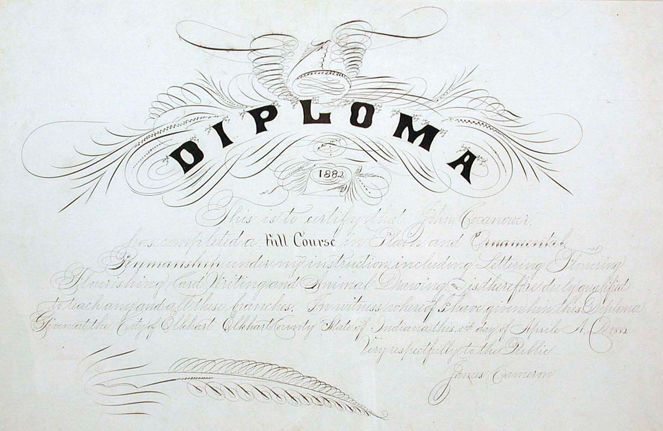 DIPLOMA
1882
This is to certify that John
has completed a Full Course in Plain and Ornamental
Penmanship under my instruction, including Lettering, Flowering
Flourishing, Card Writing and Animal Drawing is therefore duly qualified
to teach any and all these branches. In witness whereof I have given him this Diploma
at the City of Elkhart Elkhart County State of Indiana this day of April A.
Very respectfully to the Public
James Cameron